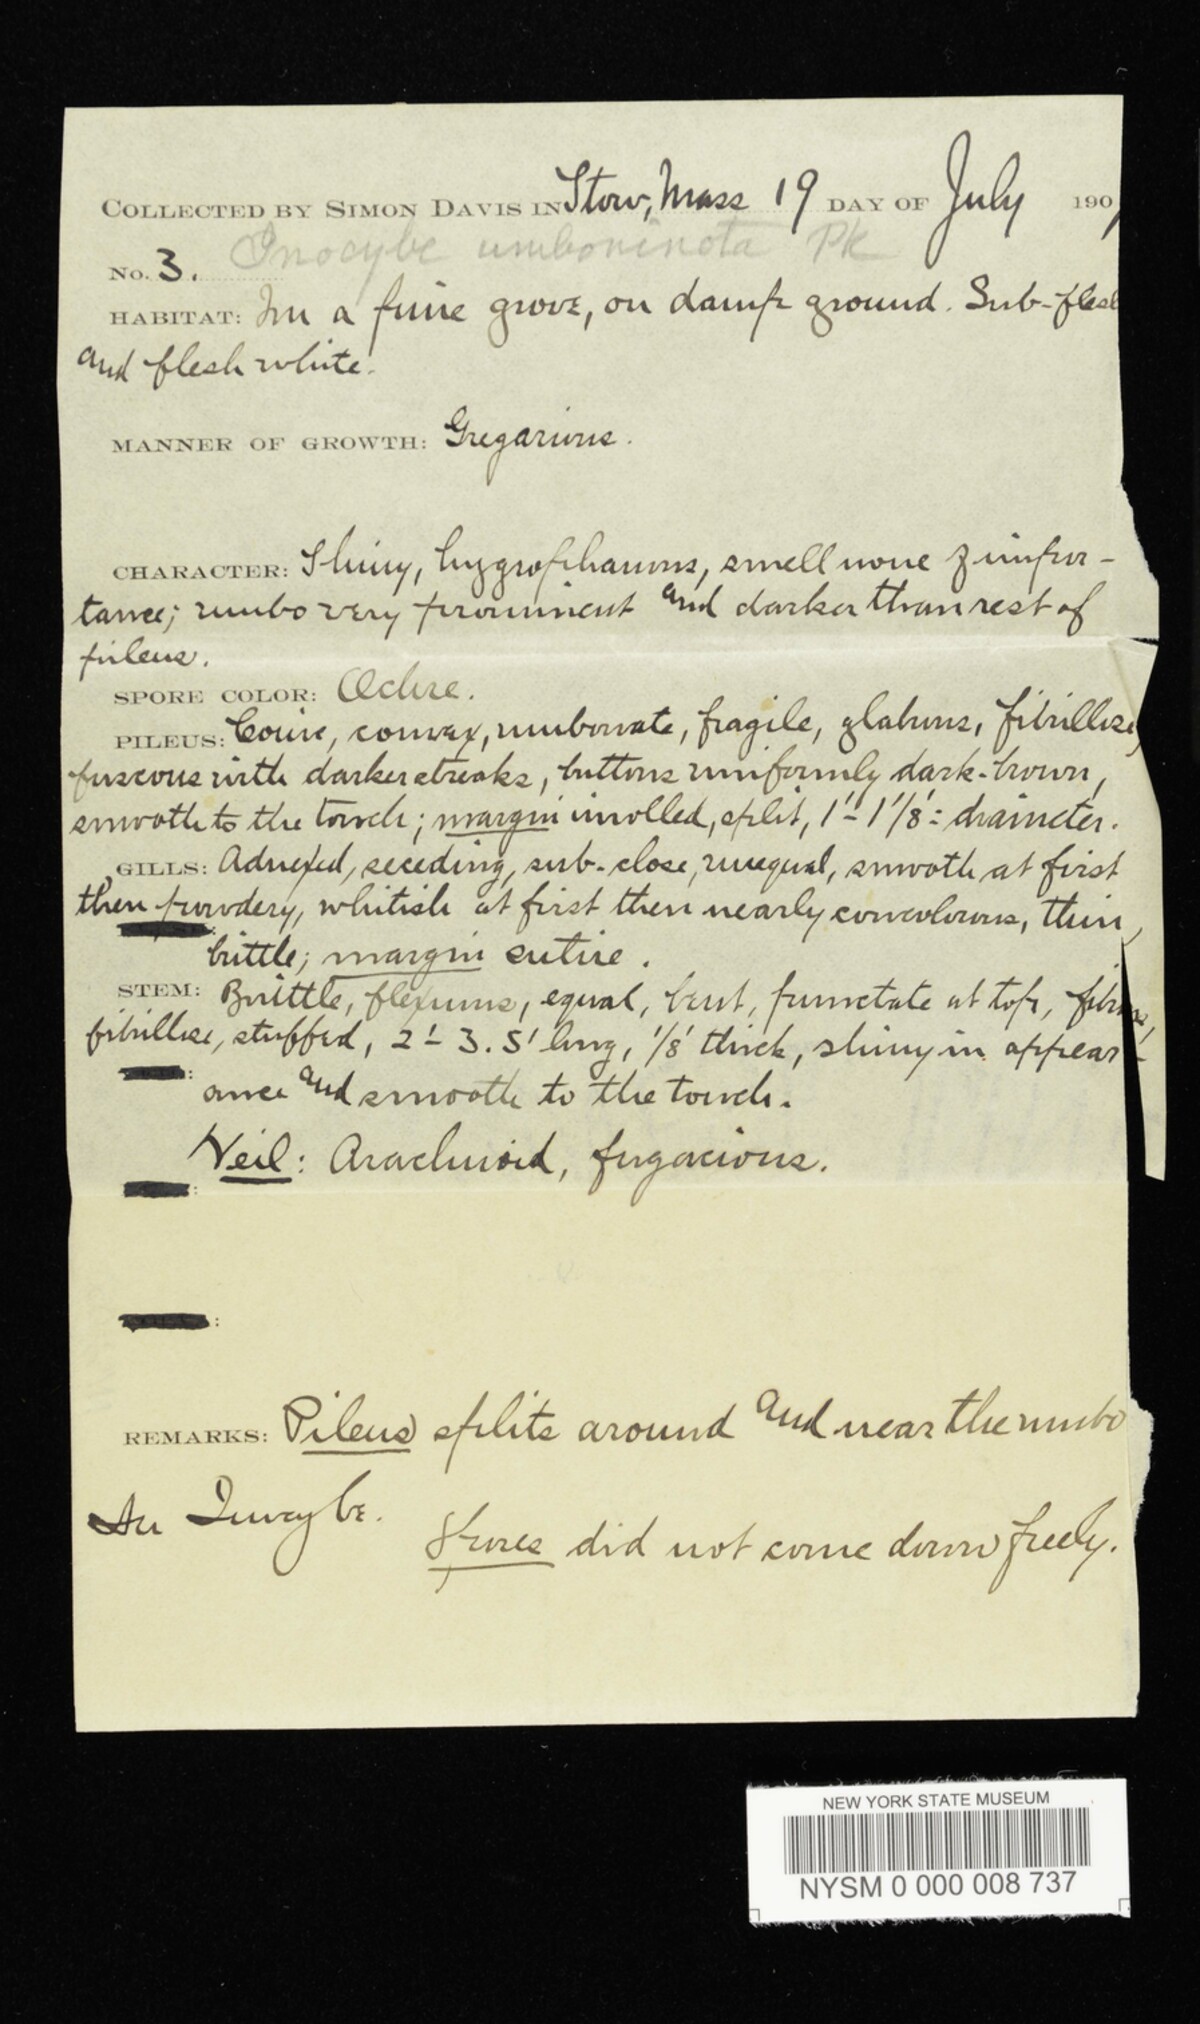 COLLECTED BY SIMON DAVIS IN Stow, Mass 19 DAY OF July 190
Inocybe umboninota Pk
No. 3.
HABITAT: In a pine grove, on damp ground. Sub-flesh
and flesh white.
MANNER OF GROWTH: Gregarious.
CHARACTER: Shiny, hygrophanous, smell none of impor-
tance; umbo very prominent and darker than rest of
pileus.
SPORE COLOR: Ochre.
PILEUS: Conic, convex, umbonate, fragile, glabrous, fibrillose,
fuscous with darker streaks, buttons uniformly dark-brown,
smooth to the touch; margin inrolled, split, 1'-1 1/8'= diameter.
GILLS: Adnexed, seceding, sub-close, unequal, smooth at first
then powdery, whitish at first then nearly concolorous, thin,
brittle; margin entire.
STEM: Brittle, flexuous, equal, bent, punctate at top, fibrous,
fibrillose, stuffed, 2'- 3.5' long, 1/8' thick, shiny in appear-
ance and smooth to the touch.
Veil: Arachnoid, fugacious.
REMARKS: Pileus splits around and near the umbo
An Inocybe.
Spores did not come down freely.
NEW YORK STATE MUSEUM
NYSM 0 000 008 737